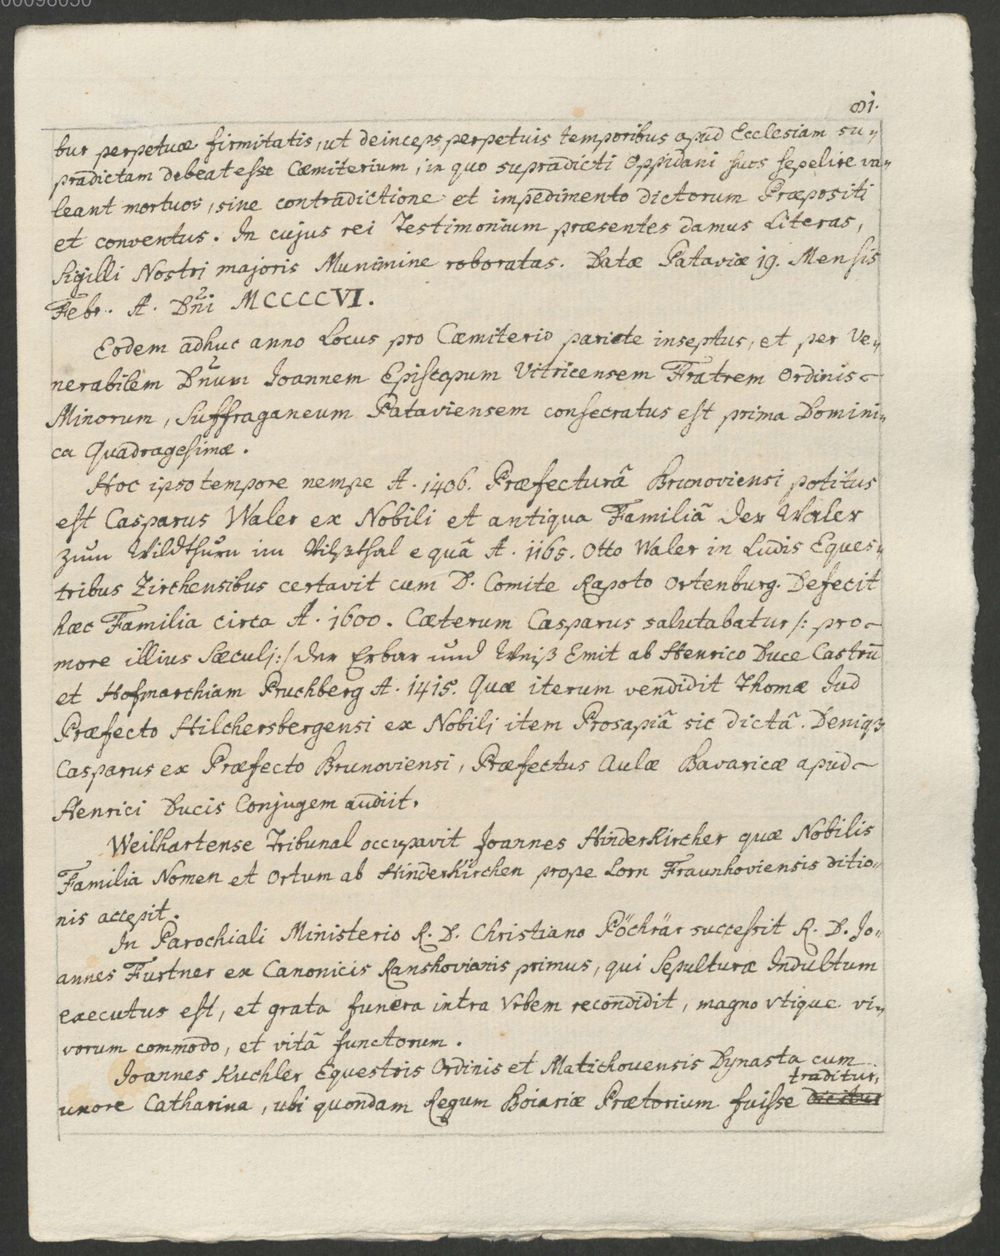 00098050
81.
bur perpetuæ firmitatis, ut deinceps perpetuis temporibus apud Ecclesiam su-
pradictam debeat esse Cæmiterium, in quo supradicti Oppidani suos sepelire va-
leant mortuos, sine contradictione et impedimento dictorum Præpositi
et conventus. In cujus rei Testimonium præsentes damus Literas,
Sigilli Nostri majoris Munimine roboratas. Datæ Pataviæ 19. Mensis
Febr. A. Dñi MCCCCVI.
Eodem adhuc anno Locus pro Cæmiterio pariete inseptus, et per Ve-
nerabilem Dñum Joannem Episcopum Vitricensem Fratrem Ordinis
Minorum, Suffraganeum Pataviensem consecratus est prima Domini-
ca Quadragesimæ.
Hoc ipso tempore nempe A. 1406. Præfecturâ Brunoviensi potitus
est Casparus Waler ex Nobili et antiqua Familiâ der Waler
zum Wildthurn im Vilsthal e quâ A. 1165. Otto Waler in Ludis Eques-
tribus Zirchensibus certavit cum D. Comite Rapoto Ortenburg. Defecit
hæc Familia circa A. 1600. Cæterum Casparus salutabatur /: pro
more illius Sæculi :/ der Erbar und Weiß Emit ab Henrico Duce Castrū
et Hofmarchiam Pruchberg A. 1415. Quæ iterum vendidit Thomæ Jud
Præfecto Hilchersbergensi ex Nobili item Prosapiâ sic dictâ. Deniqȝ
Casparus ex Præfecto Brunoviensi, Præfectus Aulæ Bavaricæ apud
Henrici Ducis Conjugem audiit.
Weilhartense Tribunal occupavit Joannes Hinderkircher quæ Nobilis
Familia Nomen et Ortum ab Hinderkirchen prope Lorn Fraunhoviensis ditio-
nis accepit.
In Parochiali Ministerio R. D. Christiano Pöchrär successit R. D. Jo-
annes Furtner ex Canonicis Ranshovianis primus, qui Sepulturæ Indultum
executus est, et grata funera intra Urbem recondidit, magno utique vi-
vorum commodo, et vitâ functorum.
Joannes Kuchler Equestris Ordinis et Matichouensis Dynasta cum
traditur,
uxore Catharina, ubi quondam Regum Boiariæ Prætorium fuisse dicitur